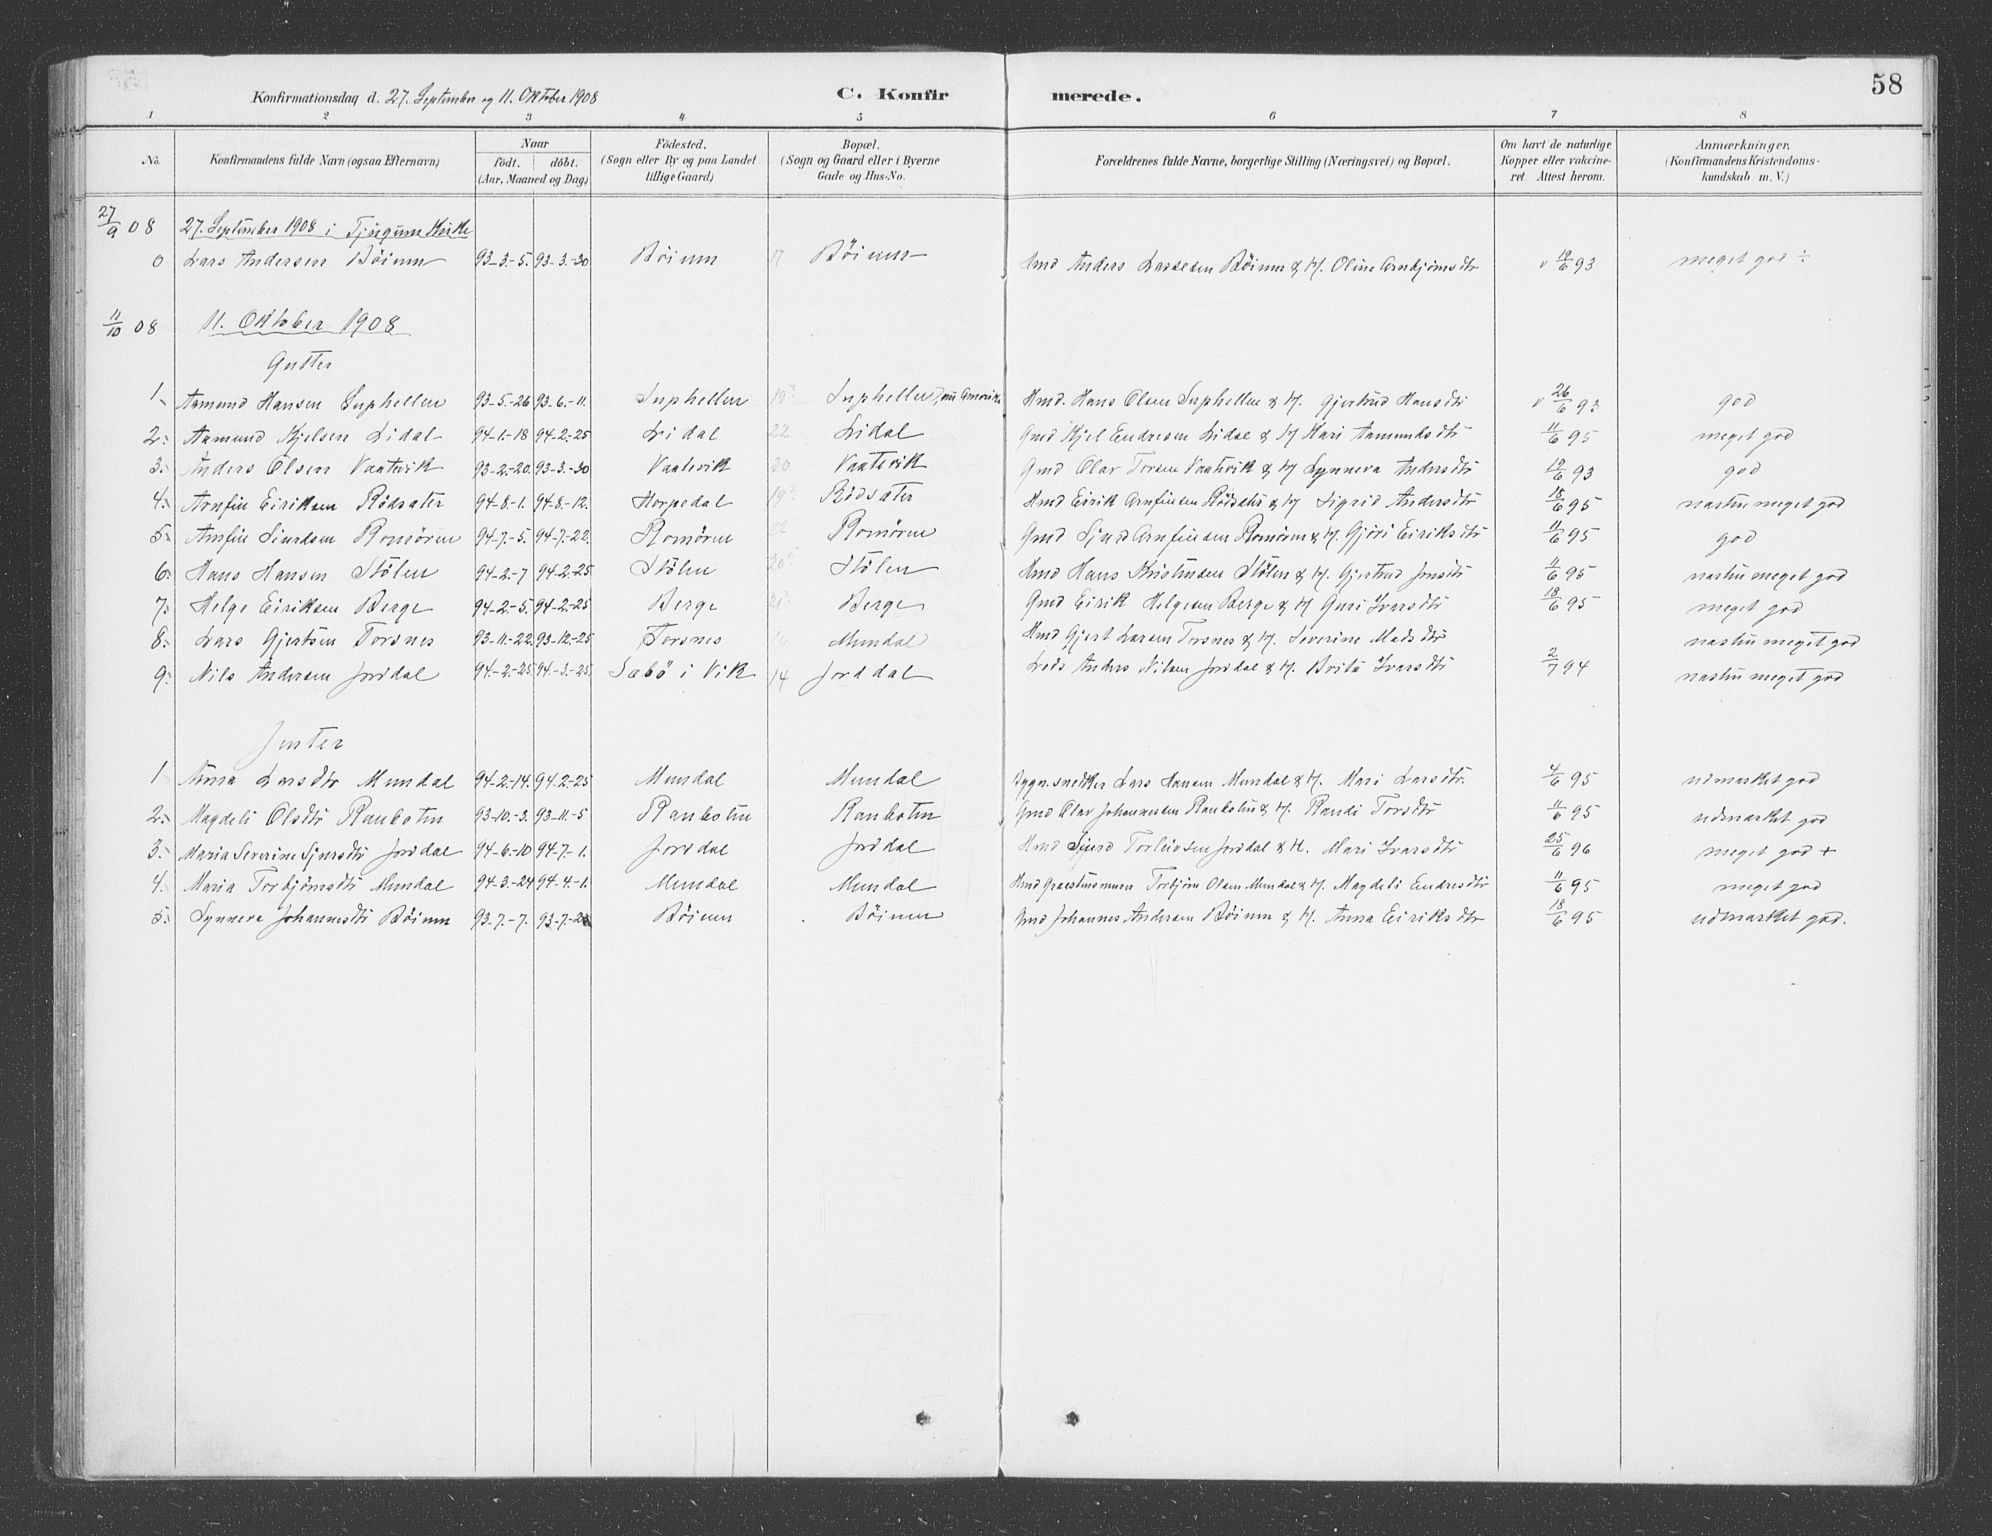 58
Konfirmationsdag d. 27. September og 11. Oktober 1908 C. Konfir merede.
1 2 3 4 5 6 7 8
No. Konfirmandens fulde Navn (ogsaa Efternavn) Naar födt. döbt. (Aar, Maaned og Dag) Födested. (Sogn eller By og paa Landet tillige Gaard) Bopæl. (Sogn og Gaard eller i Byerne Gade og Hus-No. Forældrenes fulde Navne, borgerlige Stilling (Næringsvei) og Bopæl. Om havt de naturlige Kopper eller vakcineret. Attest herom. Anmærkninger. (Konfirmandens Kristendomskundskab m. V.)
27/9 08 27. September 1908 i Tjugum Kirke
0 Lars Andersen Böium 93-3-5. 93-3-30 Böium 17 Böium Gmd Anders Larsesen Böium & H. Oline Arnbjörnsdtr v 19/6 93 meget god ÷
11/10 08 11. Oktober 1908
Gutter
1. Aamund Hansen Suphellen 93-5-26 93-6-11. Suphellen 19 Suphellen, nu Amerika Hmd. Hans Olsen Suphellen & H. Gjertrud Hansdtr v 26/6 93 god
2. Aamund Kjelsen Lidal 94-1-18 94-2-25 Lidal 22 Lidal Gmd Kjel Endresen Lidal & H Mari Aamundsdtr 11/6 95 meget god
3. Anders Olsen Vaatevik 93-2-20. 93-3-30 Vaatevik 20 Vaatevik Gmd Olav Torsen Vaatevik & H Synneva Andersdtr 19/6 93 god
4. Arnfin Eiriksen Rödsæter 94-8-1. 94-8-12. Horpedal 19 Rödsæter Hmd Eirik Arnfinsen Rödsæter & H Sigrid Andersdtr 18/6 95 næsten meget god
5. Arnfin Sjurdsen Romören 94-7-5. 94-7-22. Romören 22 Romören Gmd Sjurd Arnfinsen Romören & H. Gjöri Eiriksdtr 11/6 95 god
6. Hans Hansen Stölen 94-2-7 94-2-25 Stölen 20 Stölen Hmd Hans Kristensen Stölen & H. Gjertrud Jensdtr 11/6 95 næsten meget god
7. Helge Eiriksen Berge 94-2-5. 94-2-25 Berge Berge Gmd Eirik Helgesen Berge & H Guri Ivarsdtr 18/6 95 meget god
8. Lars Gjertsen Torsnes 93-11-22. 93-12-25 Torsnes 16 Mundal Hmd Gjert Larsen Torsnes & H. Severine Madsdtr næsten meget god
9. Nils Andersen Jordal 94-2-25 94-3-25. Sæbö i Vik 14 Jorddal Leds Anders Nilsen Jordal & H. Brita Ivarsdtr 2/7 94 næsten meget god
Jenter
1 Anna Larsdtr Mundal 94-2-14. 94-2-25 Mundal Mundal Bygn.snedker Lars Hansen Mundal & H. Mari Larsdtr. 4/6 95 udmærket god
2. Magdeli Olsdtr Rauboten 93-10-3. 93-11-5 Rauboten Rauboten Gmd Olav Johannesen Rauboten & H. Randi Torsdtr 11/6 95 udmærket god
3. Maria Severine Sjursdtr Jordal 94-6-10 94-7-1. Jordal Jordal Hmd Sjurd Torleivsen Jordal & H. Mari Ivarsdtr 25/6 96 meget god +
4. Maria Torbjörnsdtr Mundal 94-3-24 94-4-1. Mundal Mundal Hmd Graastensmurer Torbjörn Olsen Mundal & H. Magdeli Endresdtr 11/6 95 meget god
5. Synneva Johannesdtr Böium 93-7-7. 93-7- Böium Böium Gmd Johannes Andersen Böium & H. Anna Eiriksdtr 18/6 95 udmærket god.